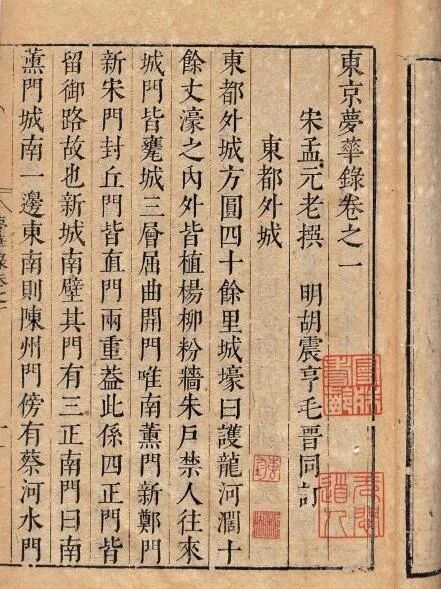 東京夢華錄卷之一
宋孟元老撰 明胡震亨毛晉同訂
東都外城
東都外城方圓四十餘里城壕曰護龍河濶十
餘丈濠之內外皆植楊柳粉牆朱戶禁人往來
城門皆甕城三層屈曲開門唯南薰門新鄭門
新宋門封丘門皆直門兩重葢此係四正門皆
留御路故也新城南壁其門有三正南門曰南
薰門城南一邊東南則陳州門傍有蔡河水門